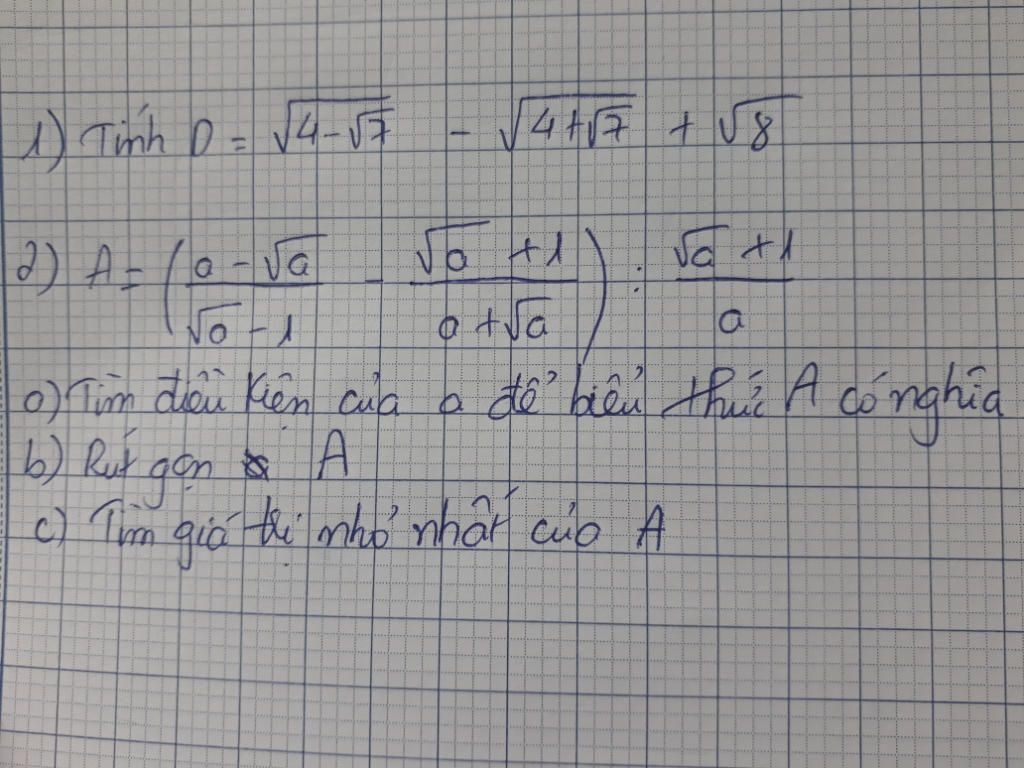 1) Tính D = √(4-√7) - √(4+√7) + √8
2) A = ( (a - √a)/(√a - 1) - (√a + 1)/(a + √a) ) : (√a + 1)/a
a) Tìm điều kiện của a để biểu thức A có nghĩa
b) Rút gọn A
c) Tìm giá trị nhỏ nhất của A